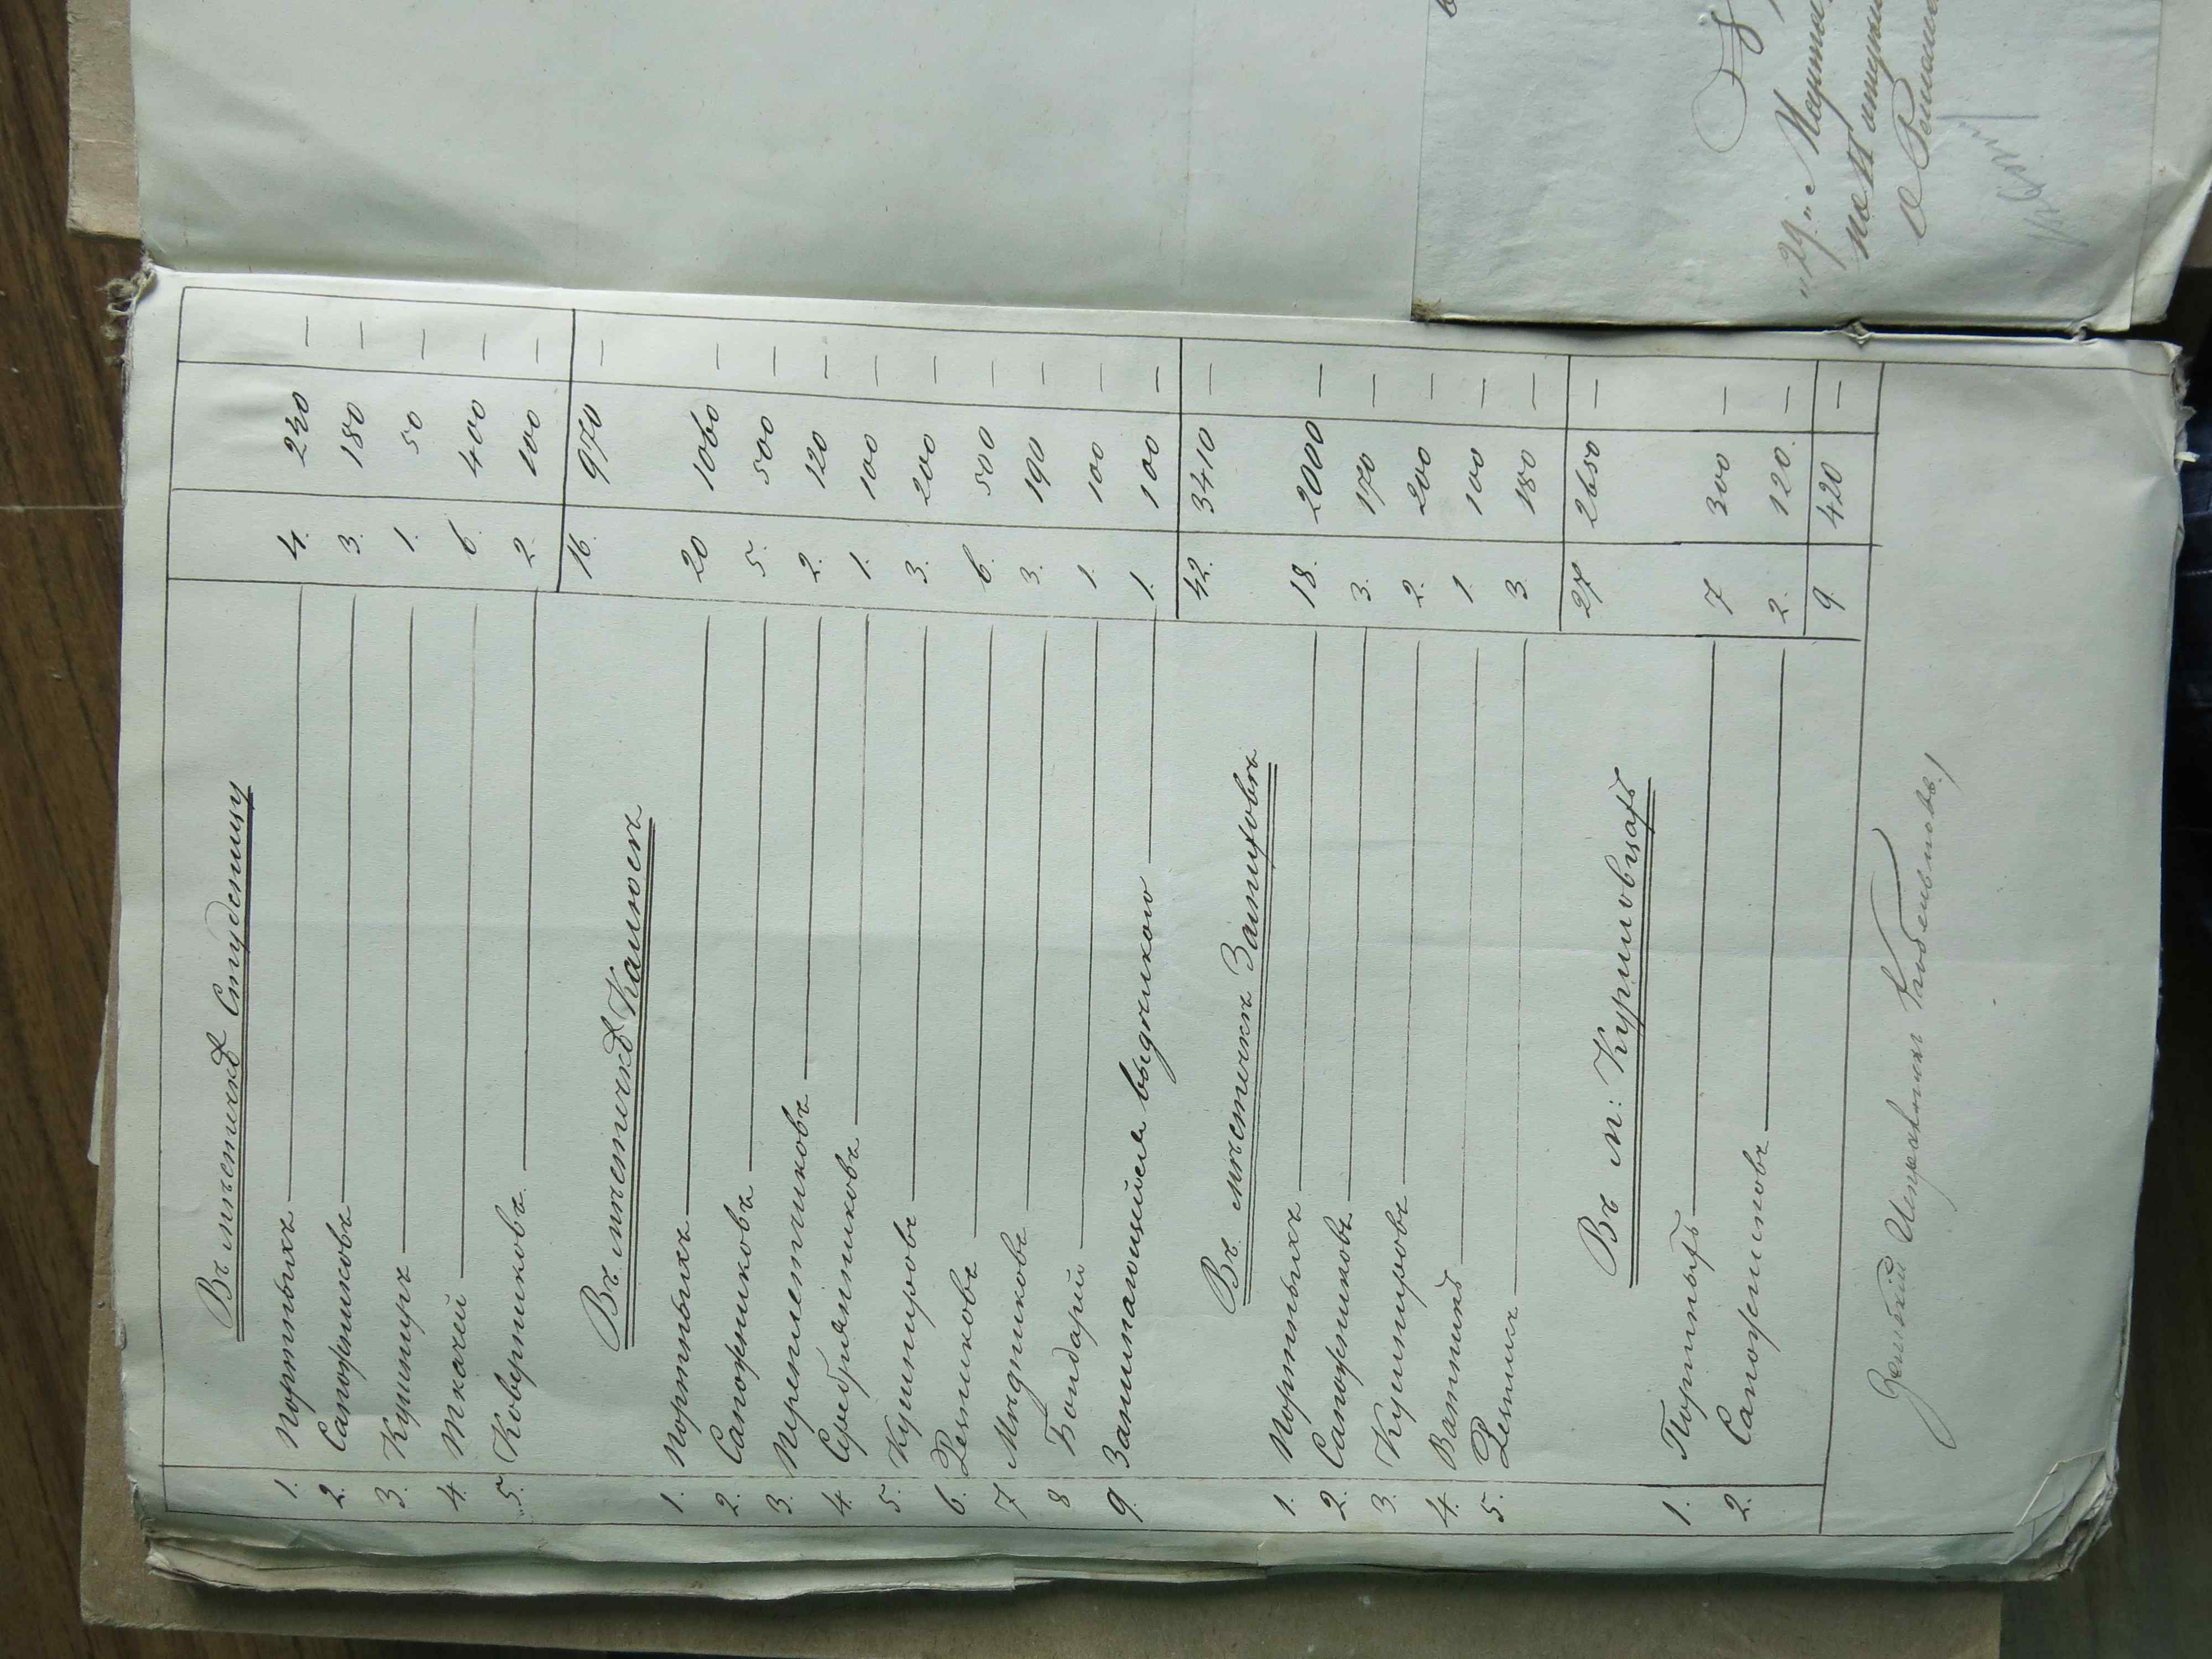 Въ мѣстичкѣ Студеницу
1. Портныхъ 4. 240 —
2. Сапожниковъ 3. 180 —
3. Кушниръ 1. 50 —
4. Ткачей 6. 400 —
5. Коверниковъ 2. 100 —
16. 970 —
Въ мѣстичкѣ Калюсъ
1. Портныхъ 20 1060 —
2. Сапожниковъ 5. 500 —
3. Переплетчиковъ 2. 120 —
4. Серебрянниковъ 1. 100 —
5. Кушнировъ 3. 200 —
6. Резниковъ 6. 500 —
7 Мѣдниковъ 3. 190 —
8 Бондарей 1. 100 —
9. Занимающийся выдѣлкою 1. 100 —
42. 3410 —
Въ мѣстичкѣ
1. Портныхъ 18. 2000 —
2. Сапожниковъ 3. 170 —
3. Кушнировъ 2. 200 —
4. 1 100 —
5. 3. 180 —
27 2650 —
Въ м: Куриловцахъ
1. Портныхъ 7 300 —
2. Сапожниковъ 2. 120. —
9. 420 —
Земскій Исправникъ
"29."